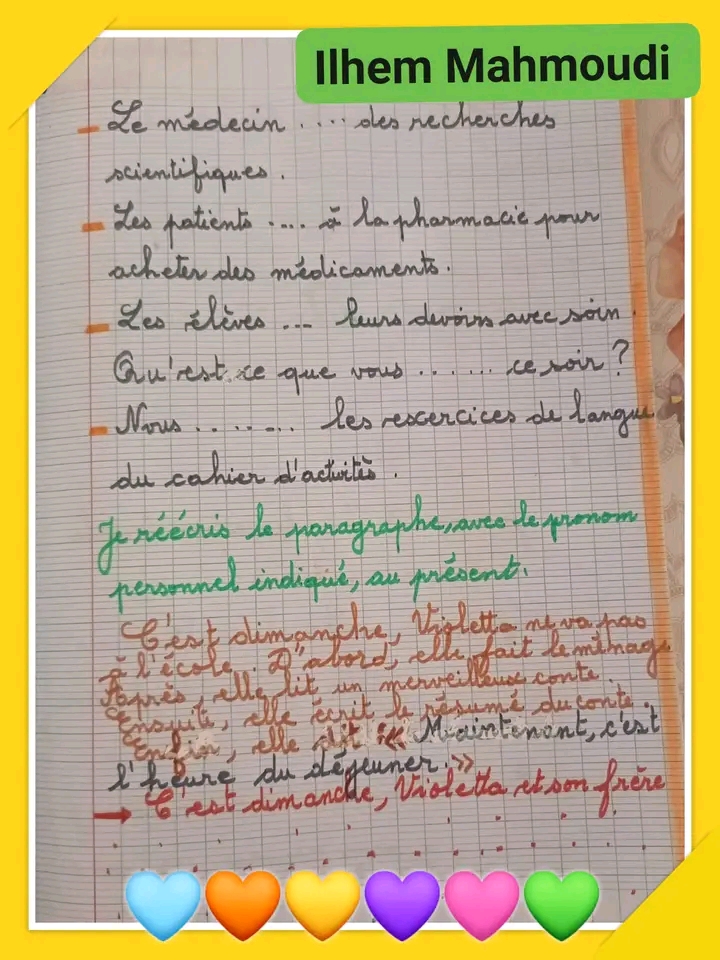 Ilhem Mahmoudi
- Le médecin .... des recherches
scientifiques.
- Les patients .... à la pharmacie pour
acheter des médicaments.
- Les élèves ... leurs devoirs avec soin.
Qu'est ce que vous ...... ce soir ?
- Nous ........ les exercices de langue
du cahier d'activités.
Je réécris le paragraphe, avec le pronom
personnel indiqué, au présent.
C'est dimanche, Violetta ne va pas
à l'école. D'abord, elle fait le ménage
Après, elle lit un merveilleux conte.
Ensuite, elle écrit le résumé du conte.
Enfin, elle dit : « Maintenant, c'est
l'heure du déjeuner. »
→ C'est dimanche, Violetta et son frère